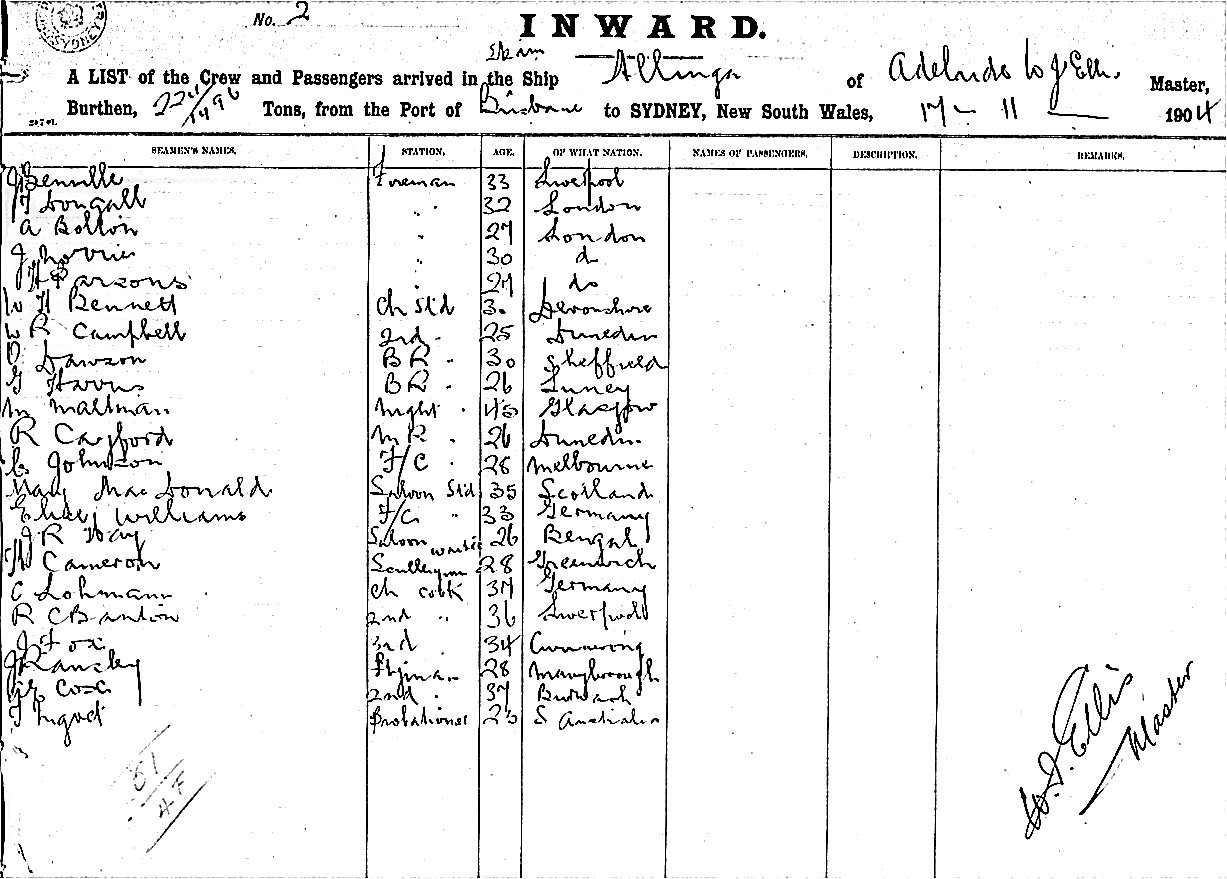 SYDNEY
No. 2
INWARD.
Steam
A LIST of the Crew and Passengers arrived in the Ship Allinga of Adelaide W J Ellis Master,
Burthen, Tons, from the Port of Brisbane to SYDNEY, New South Wales, 17 - 11 1904
SEAMEN'S NAMES. STATION. AGE. OF WHAT NATION. NAMES OF PASSENGERS. DESCRIPTION. REMARKS.
Foreman 33 Liverpool
Dougall " 32 London
A Bolton " 27 London
J Norrie " 30 do
H Parsons " 27 do
W H Bennett Ch Std 30 Devonshire
W R Campbell 2nd " 25 Dunedin
O Dawson BR " 30 Sheffield
G Harris BR " 26
M Maltman Night " 45 Glasgow
R Cayford MR " 26 Dunedin
C Johnson F/C " 28 Melbourne
Mary MacDonald Saloon Std 35 Scotland
Williams F/C " 33 Germany
J R Way Saloon waiter 26 Bengal
W Cameron 28 Greenwich
C Lohmann Ch Cook 37 Germany
R C Banton 2nd " 36 Liverpool
J Fox 3rd 34
J Ransley 28 Maryborough
Cox 2nd " 37 Burwash
Probationer S Australia
81
4 F
W. J. Ellis
Master